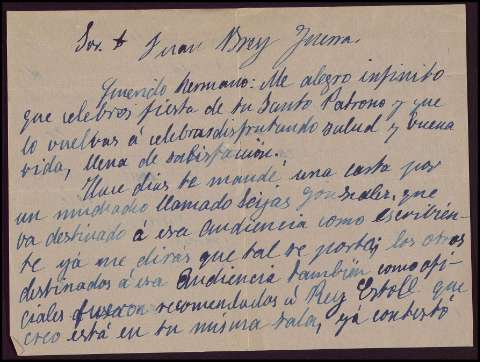 Sor. D. Juan Brey Guerra.
Querido hermano: Me alegro infinito
que celebres fiesta de tu Santo Patrono y que
lo vuelvas á celebrar disfrutando salud y buena
vida, llena de satisfación.
Hace dias te mandé una carta por
un muchacho llamado Seijas Gonzales, que
va destinado á esa Audiencia como escribién-
te ya me dirás que tal se porta; los otros
destinados á esa Audiencia también como ofi-
ciales fueron recomendados á Rey Estoll que
creo está en tu misma sala, ya contestó